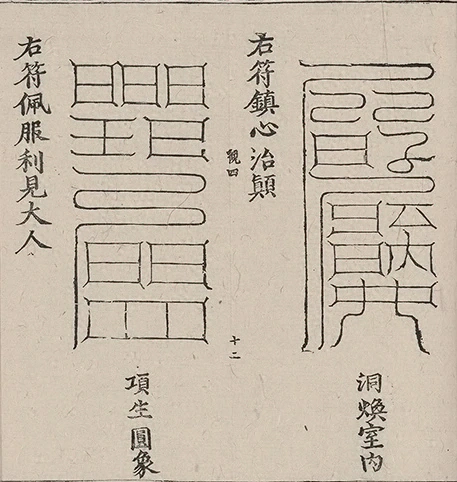 洞煥室内
右符鎮心治顛
觀四
十二
項生圓象
右符佩服利見大人